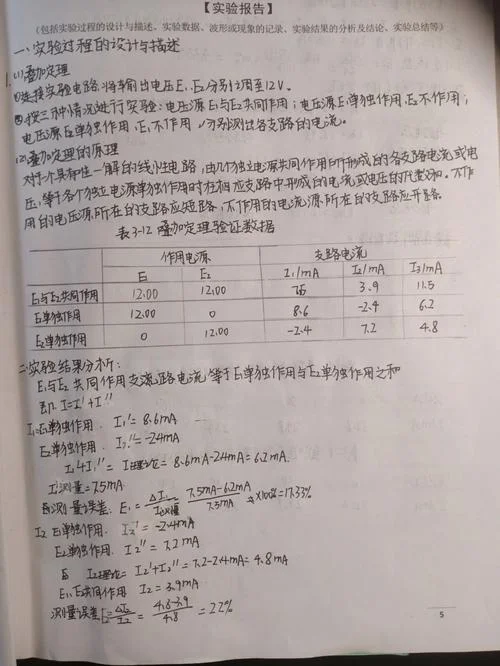 【实验报告】
（包括实验过程的设计与描述、实验数据、波形或现象的记录、实验结果的分析及结论、实验总结等）
一、实验过程的设计与描述
1. (1)叠加定理
①连接实验电路，将输出电压E₁、E₂分别调至12V.
②按三种情况进行实验：电压源E₁与E₂共同作用；电压源E₁单独作用，E₂不作用；
电压源E₂单独作用，E₁不作用，分别测出各支路的电流。
(2)叠加定理的原理
对于一个具有唯一解的线性电路，由几个独立电源共同作用所形成的各支路电流或电
压，等于各个独立电源单独作用时在相应支路中形成的电流或电压的代数和。不作
用的电压源所在的支路应短路，不作用的电流源所在的支路应开路。
表3-12 叠加定理验证数据
作用电源 支路电流
E₁ E₂ I₁/mA I₂/mA I₃/mA
E₁与E₂共同作用 12.00 12.00 7.5 3.9 11.5
E₁单独作用 12.00 0 8.6 -2.4 6.2
E₂单独作用 0 12.00 -2.4 7.2 4.8
二.实验结果分析：
E₁与E₂共同作用支流路电流，等于E₁单独作用与E₂单独作用之和
即 I=I'+I''
I₁=E₁单独作用. I₁'=8.6mA
E₂单独作用. I₁''=-2.4mA
I₁'+I₁''=I₁理论=8.6mA-2.4mA=6.2mA.
I₁测量=7.5mA
测量误差. E₁=ΔI₁/I₁测量 7.5mA-6.2mA/7.5mA ×100%=17.33%
I₂ E₁单独作用. I₂'=-2.4mA
E₂单独作用. I₂''=7.2mA
I₂理论=I₂'+I₂''=7.2-2.4mA=4.8mA
E₁、E₂共同作用 I₂=3.9mA
测量误差E₂=ΔI₂/I₂=4.8-3.9/4.8=22%
5